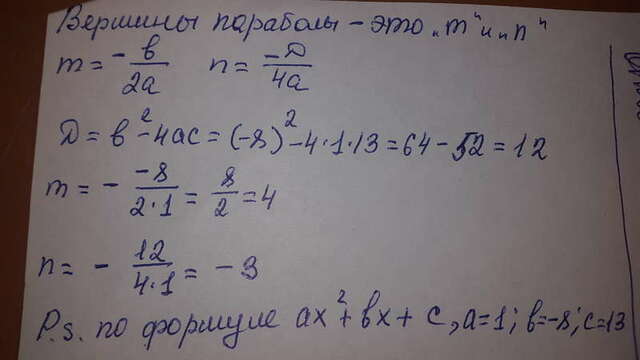 Вершины параболы - это „m" и „n"
m = -b/2a n = -D/4a
D = b² - 4ac = (-8)² - 4·1·13 = 64 - 52 = 12
m = - -8/2·1 = 8/2 = 4
n = - 12/4·1 = -3
P.s. по формуле ax² + bx + c, a=1; b=-8; c=13